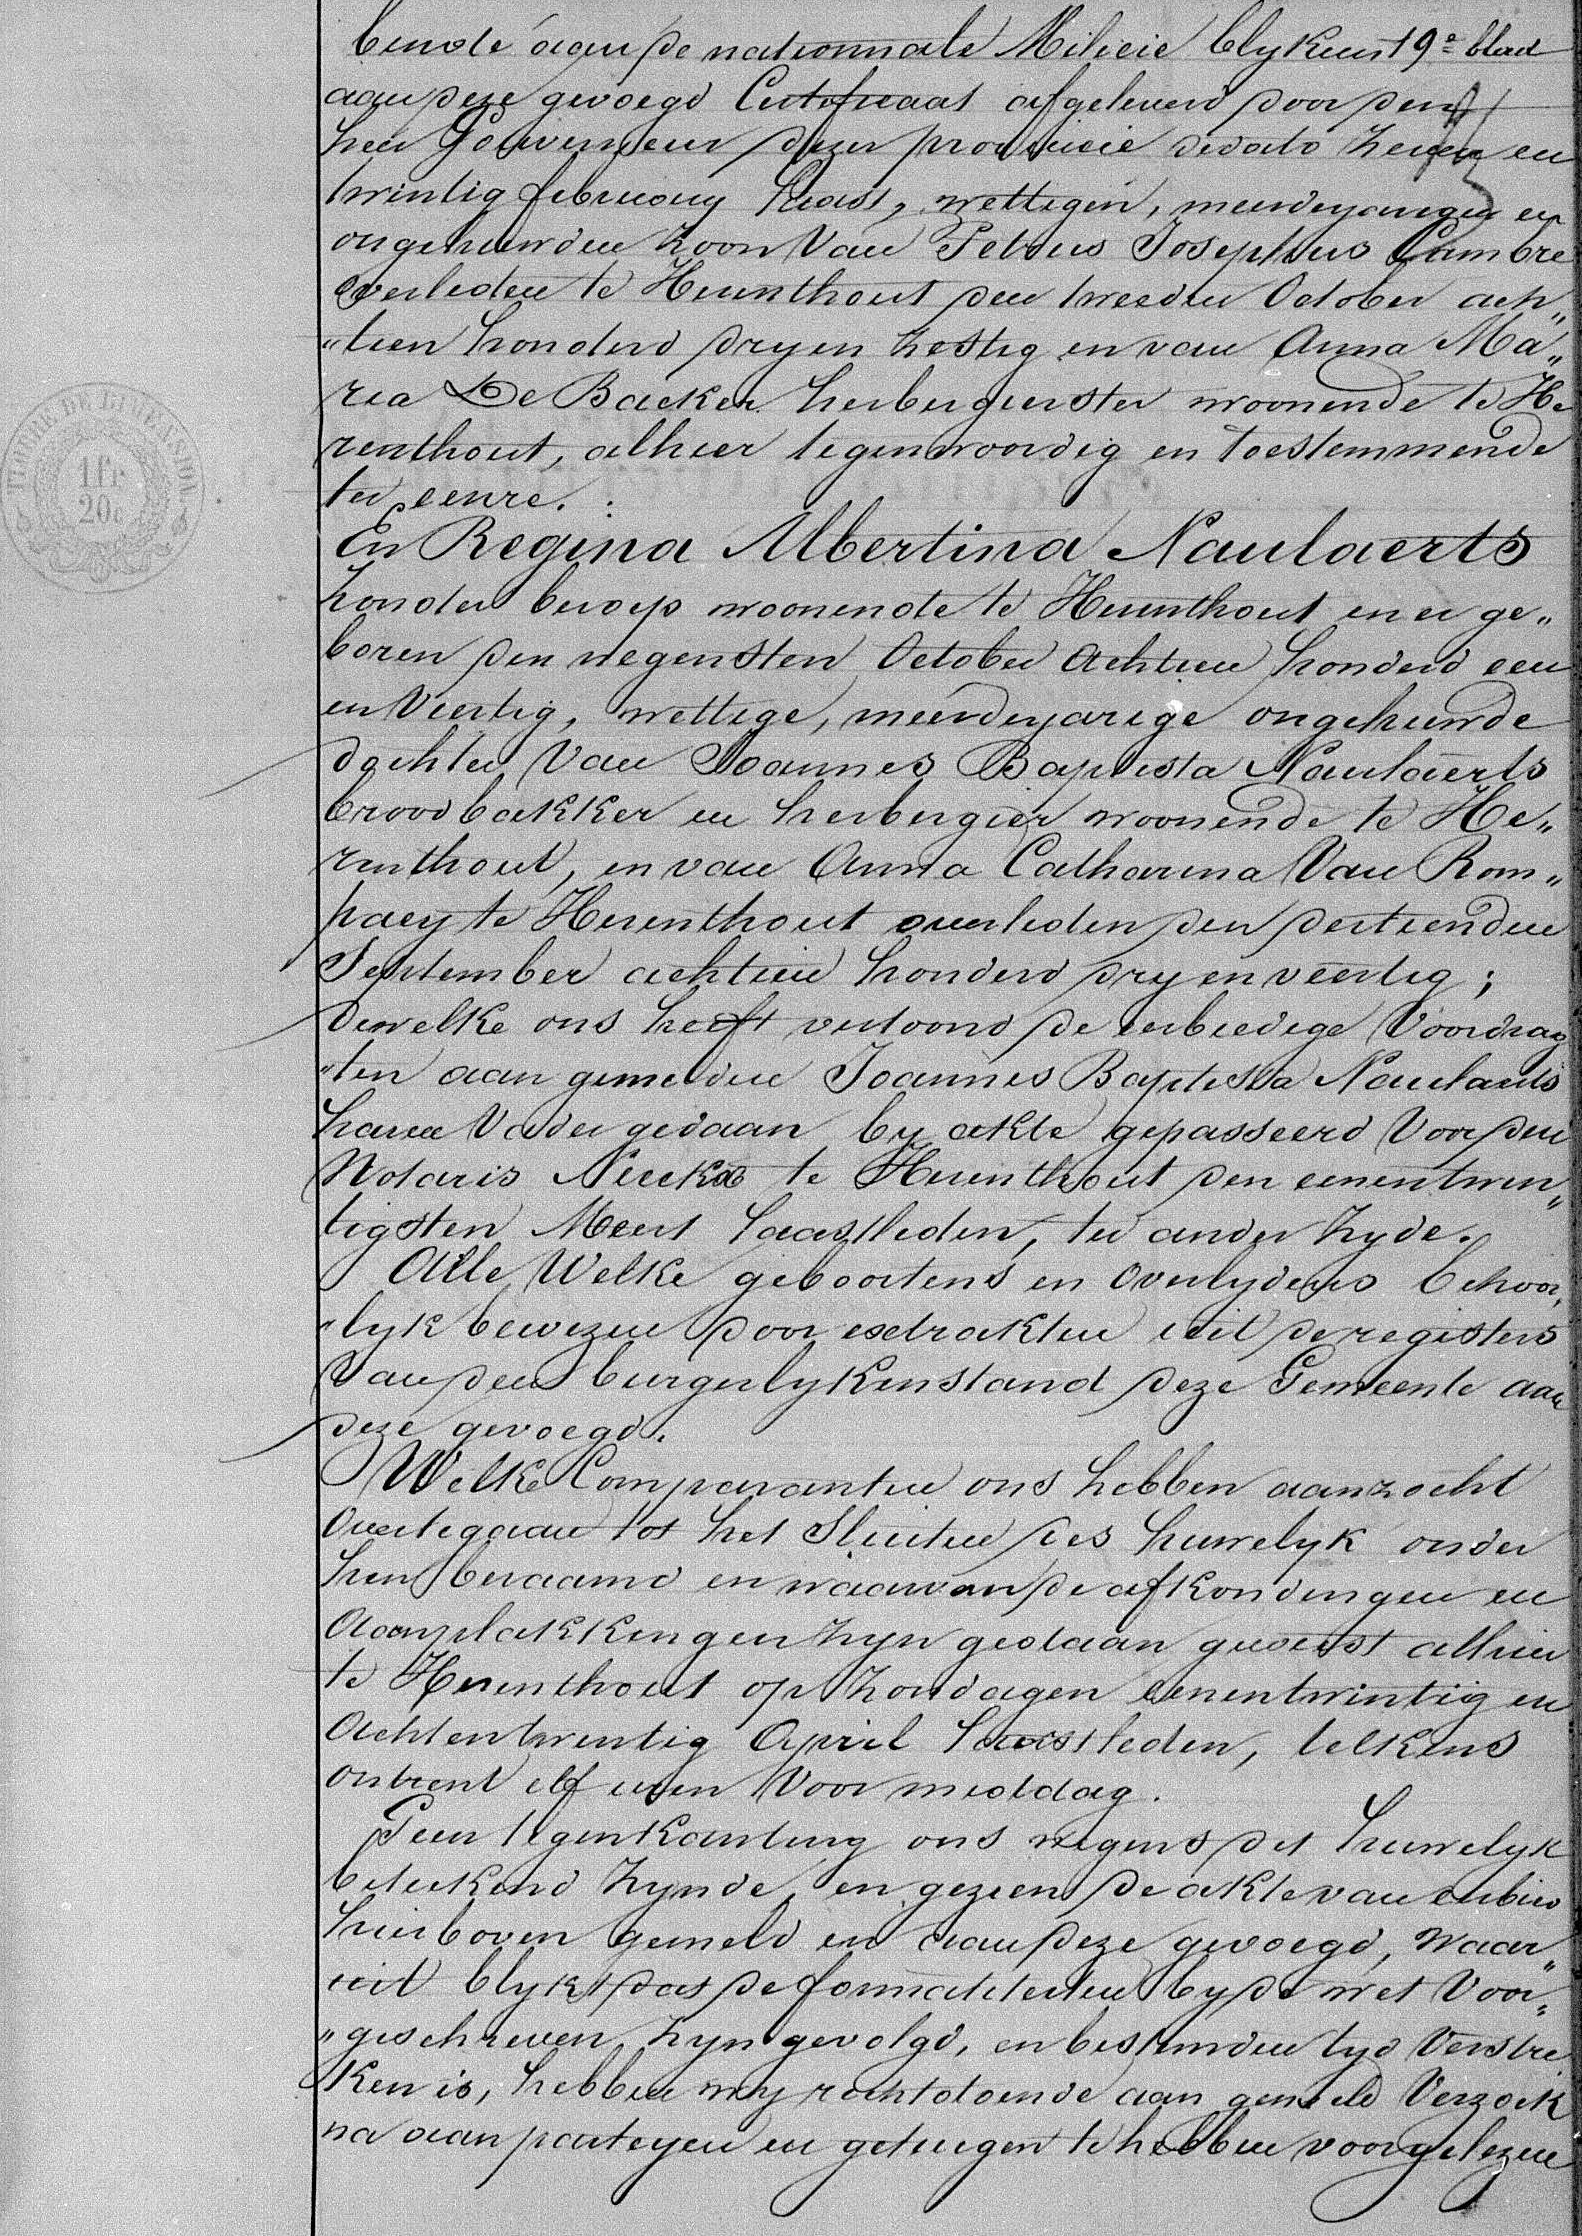 bende aan de nationnale Milicie blykens 19e blad
aan deze gevoegd Certificaat afgeleverd door den
heer Gouverneur dezer provincie dedato zeven en
twintig february laast, wettigen, meerderjarigen en
ongehuwden zoon van Petrus Josephus Cambré
overleden te Herenthout den tweeden October ach„
„tien honderd dry en zestig en van Anna Ma„
ria De Backer herbergierster woonende te He
renthout, alhier tegenwoordig en toestemmende
ter eenre.
En Regina Albertina Naulaerts
zonder beroep woonende te Herenthout en er ge„
boren den negensten October Achtien honderd een
en Veertig, wettige, meerderjarige ongehuwde
dochter van Joannes Baptista Naulaerts
broodbakker en herbergier woonende te He„
renthout, en van Anna Catharina Van Rom„
paey te Herenthout overleden den dertienden
September achtien honderd dry en veertig;
dewelke ons heeft vertoond de eerbiedige Voordrag
„ten aan gemelden Joannes Baptista Naulaerts
haren Vader gedaan by akte gepasseerd Voor den
Notaris te Herenthout den eenentwin„
tigsten Meert laastleden, ter ander zyde.
Alle Welke geboortens en Overlydens behoor„
„lyk bewezen door extrakten uit de registers
Van den burgerlykenstand deze Gemeente aan
deze gevoegd.
Welke Comparanten ons hebben aanzocht
Overtegaan tot het Sluiten des huwelyk onder
hen beraamd en waarvan de afkondingen en
Aanplakkingen zyn gedaan geweest alhier
te Herenthout op zondagen eenentwintig en
Achtentwintig April laastleden, telkens
ontrent elf uren Voormiddag.
Geen tegenkanting ons wegens dit huwelyk
beteekend zynde, en gezien de akte van eerbied
hierboven gemeld en aan deze gevoegd, waar„
uit blykt dat de formaliteiten by de wet Voor„
„geschreven zyn gevolgd, en bestemden tyd Verstre
ken is, hebben wy rechtdoende aan gemeld Verzoek
na aan parteyen en getuigen te hebben voorgelezen
TIMBRE DE DIMENSION
1 fr
20c